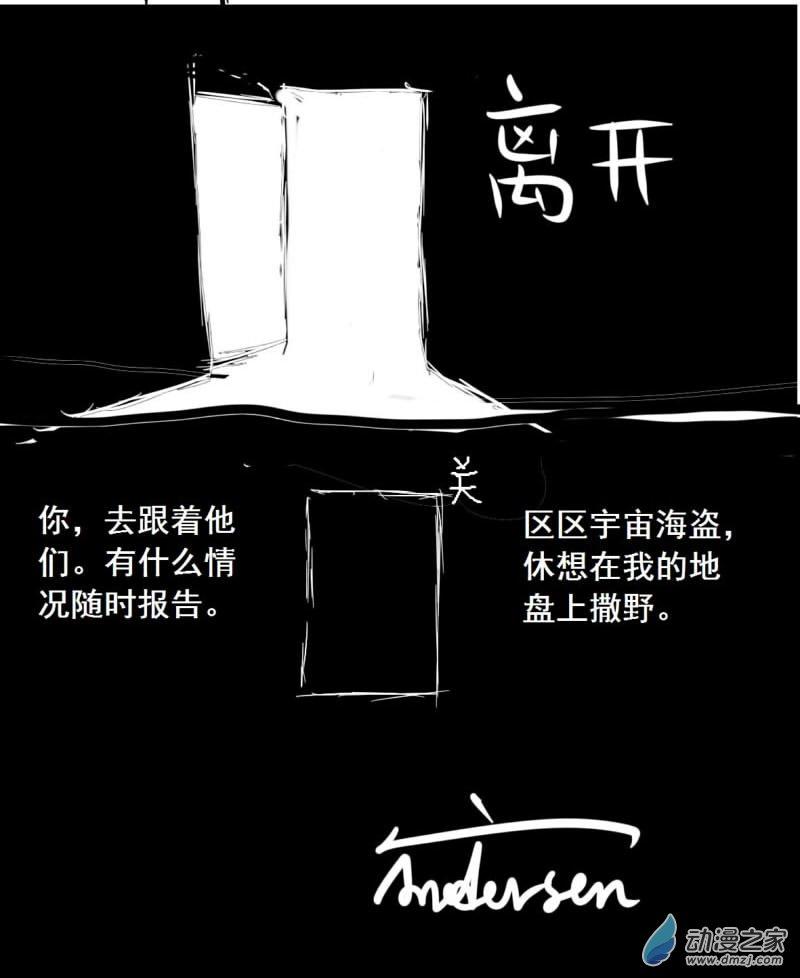 离开
关
你，去跟着他
们。有什么情
况随时报告。
区区宇宙海盗，
休想在我的地
盘上撒野。
Andersen
动漫之家
www.dmzj.com